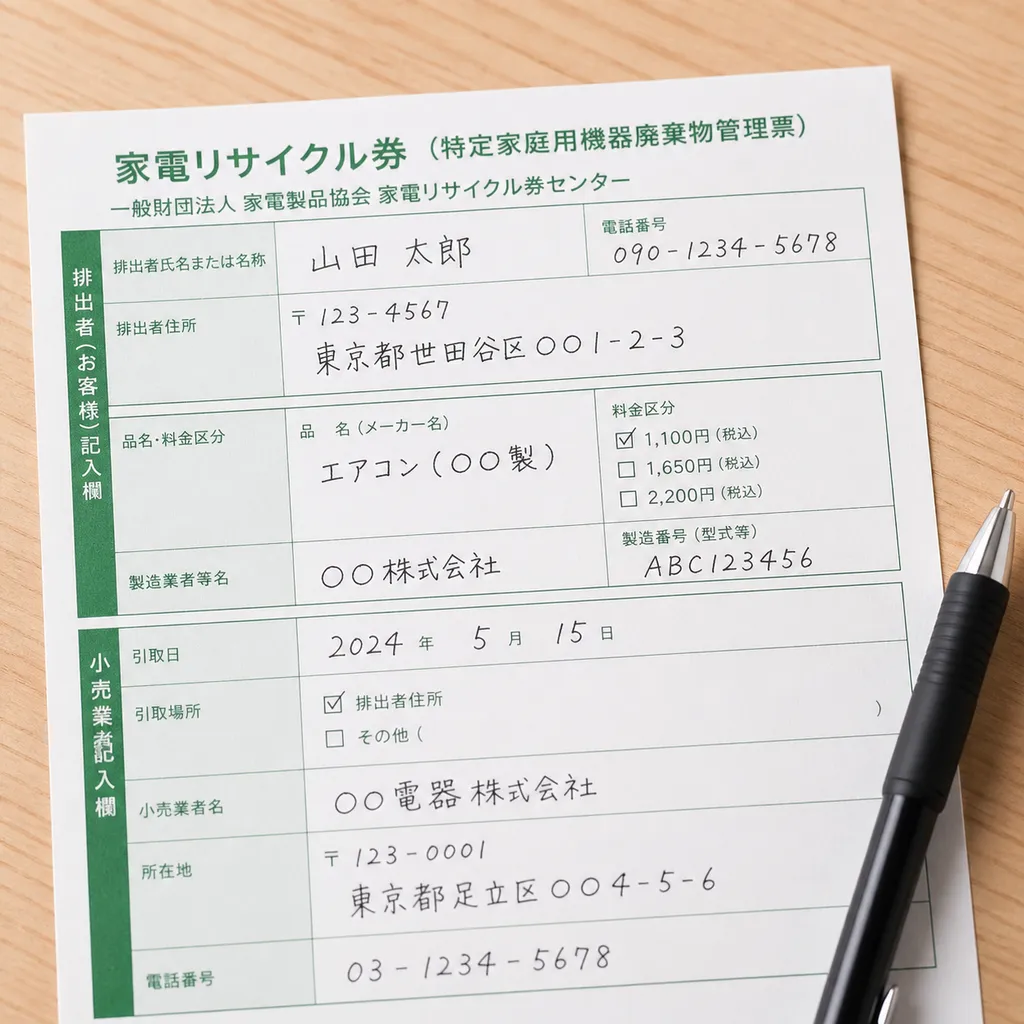 家電リサイクル券（特定家庭用機器廃棄物管理票）
一般財団法人 家電製品協会 家電リサイクル券センター
排出者(お客様)記入欄
排出者氏名または名称
山田 太郎
電話番号
090-1234-5678
排出者住所
〒123-4567
東京都世田谷区〇〇1-2-3
品名・料金区分
品 名（メーカー名）
エアコン(〇〇製)
料金区分
☑ 1,100円（税込）
☐ 1,650円（税込）
☐ 2,200円（税込）
製造業者等名
〇〇株式会社
製造番号（型式等）
ABC123456
小売業者記入欄
引取日
2024 年 5 月 15 日
引取場所
☑ 排出者住所
☐ その他（ ）
小売業者名
〇〇電器株式会社
所在地
〒123-0001
東京都足立区〇〇4-5-6
電話番号
03-1234-5678